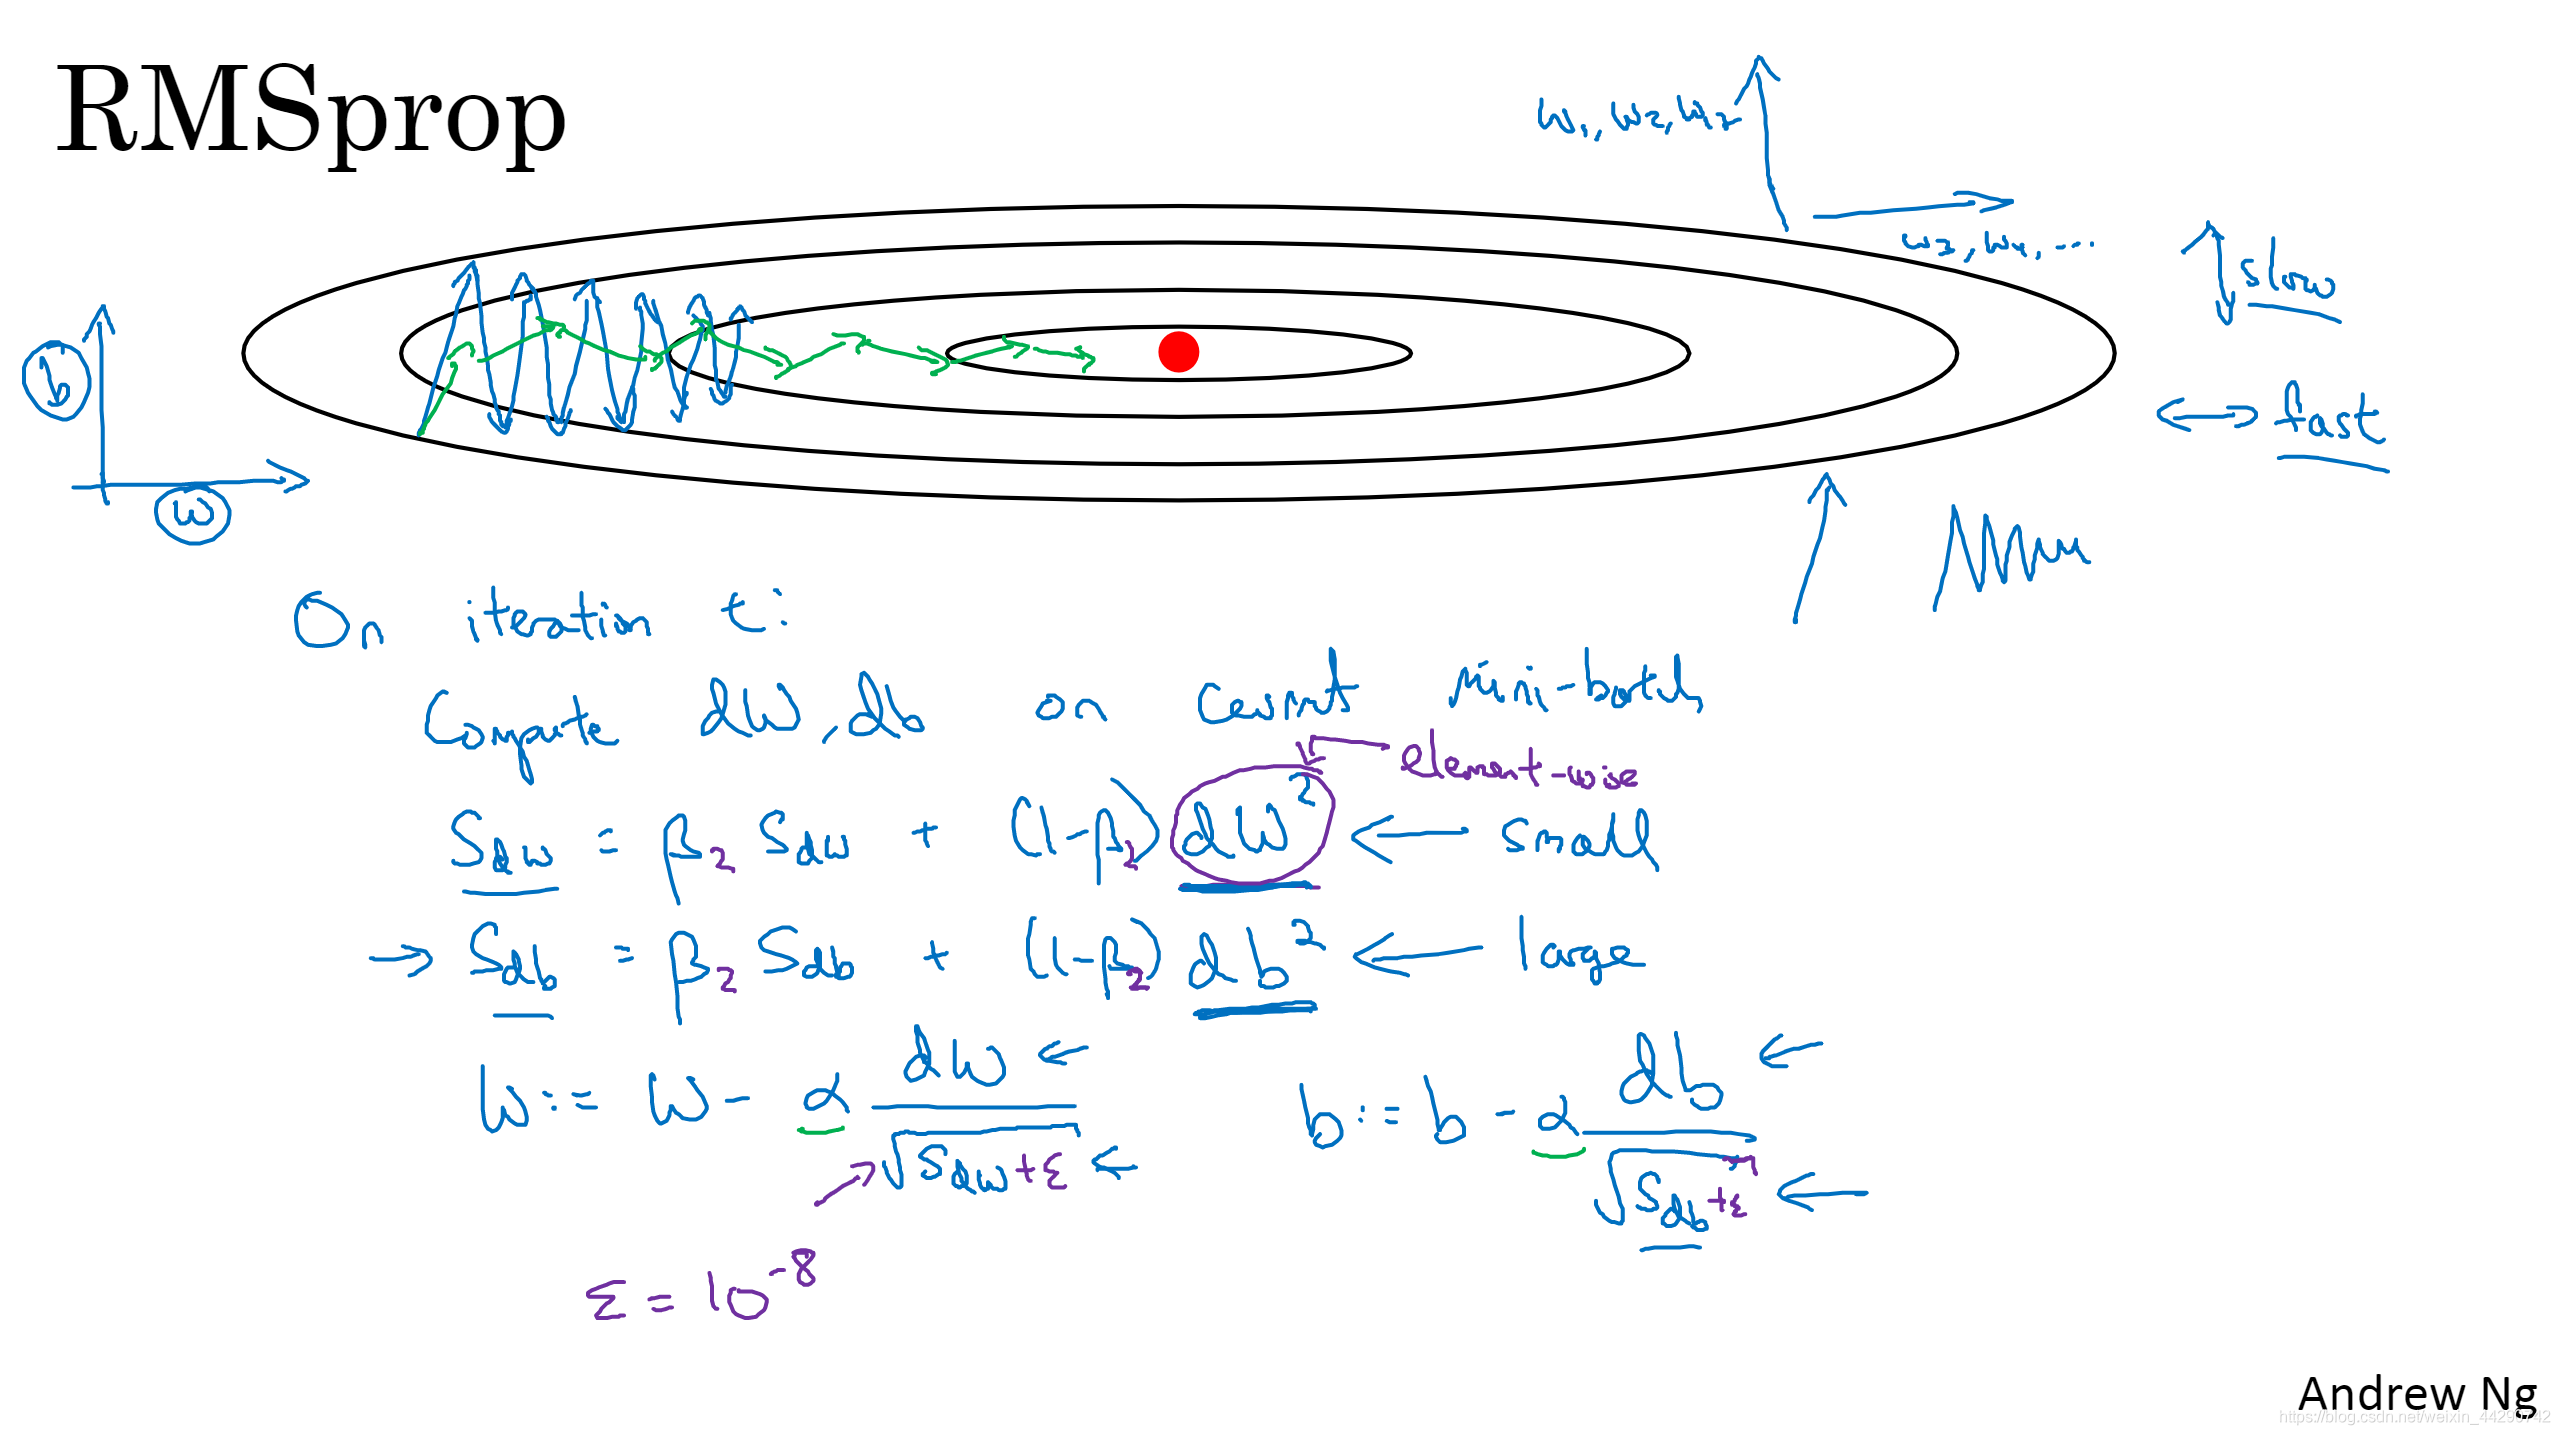 RMSprop
w₁, w₂, w₁₇
w₃, w₄, ...
slow
fast
b
w
On iteration t:
Compute dW, db on current mini-batch
element-wise
Sdw = β₂ Sdw + (1-β₂) dW² ← small
→ Sdb = β₂ Sdb + (1-β₂) db² ← large
W := W - α dW / √(Sdw + ε) ←
b := b - α db / √(Sdb + ε) ←
ε = 10⁻⁸
Andrew Ng
https://blog.csdn.net/weixin_44290742